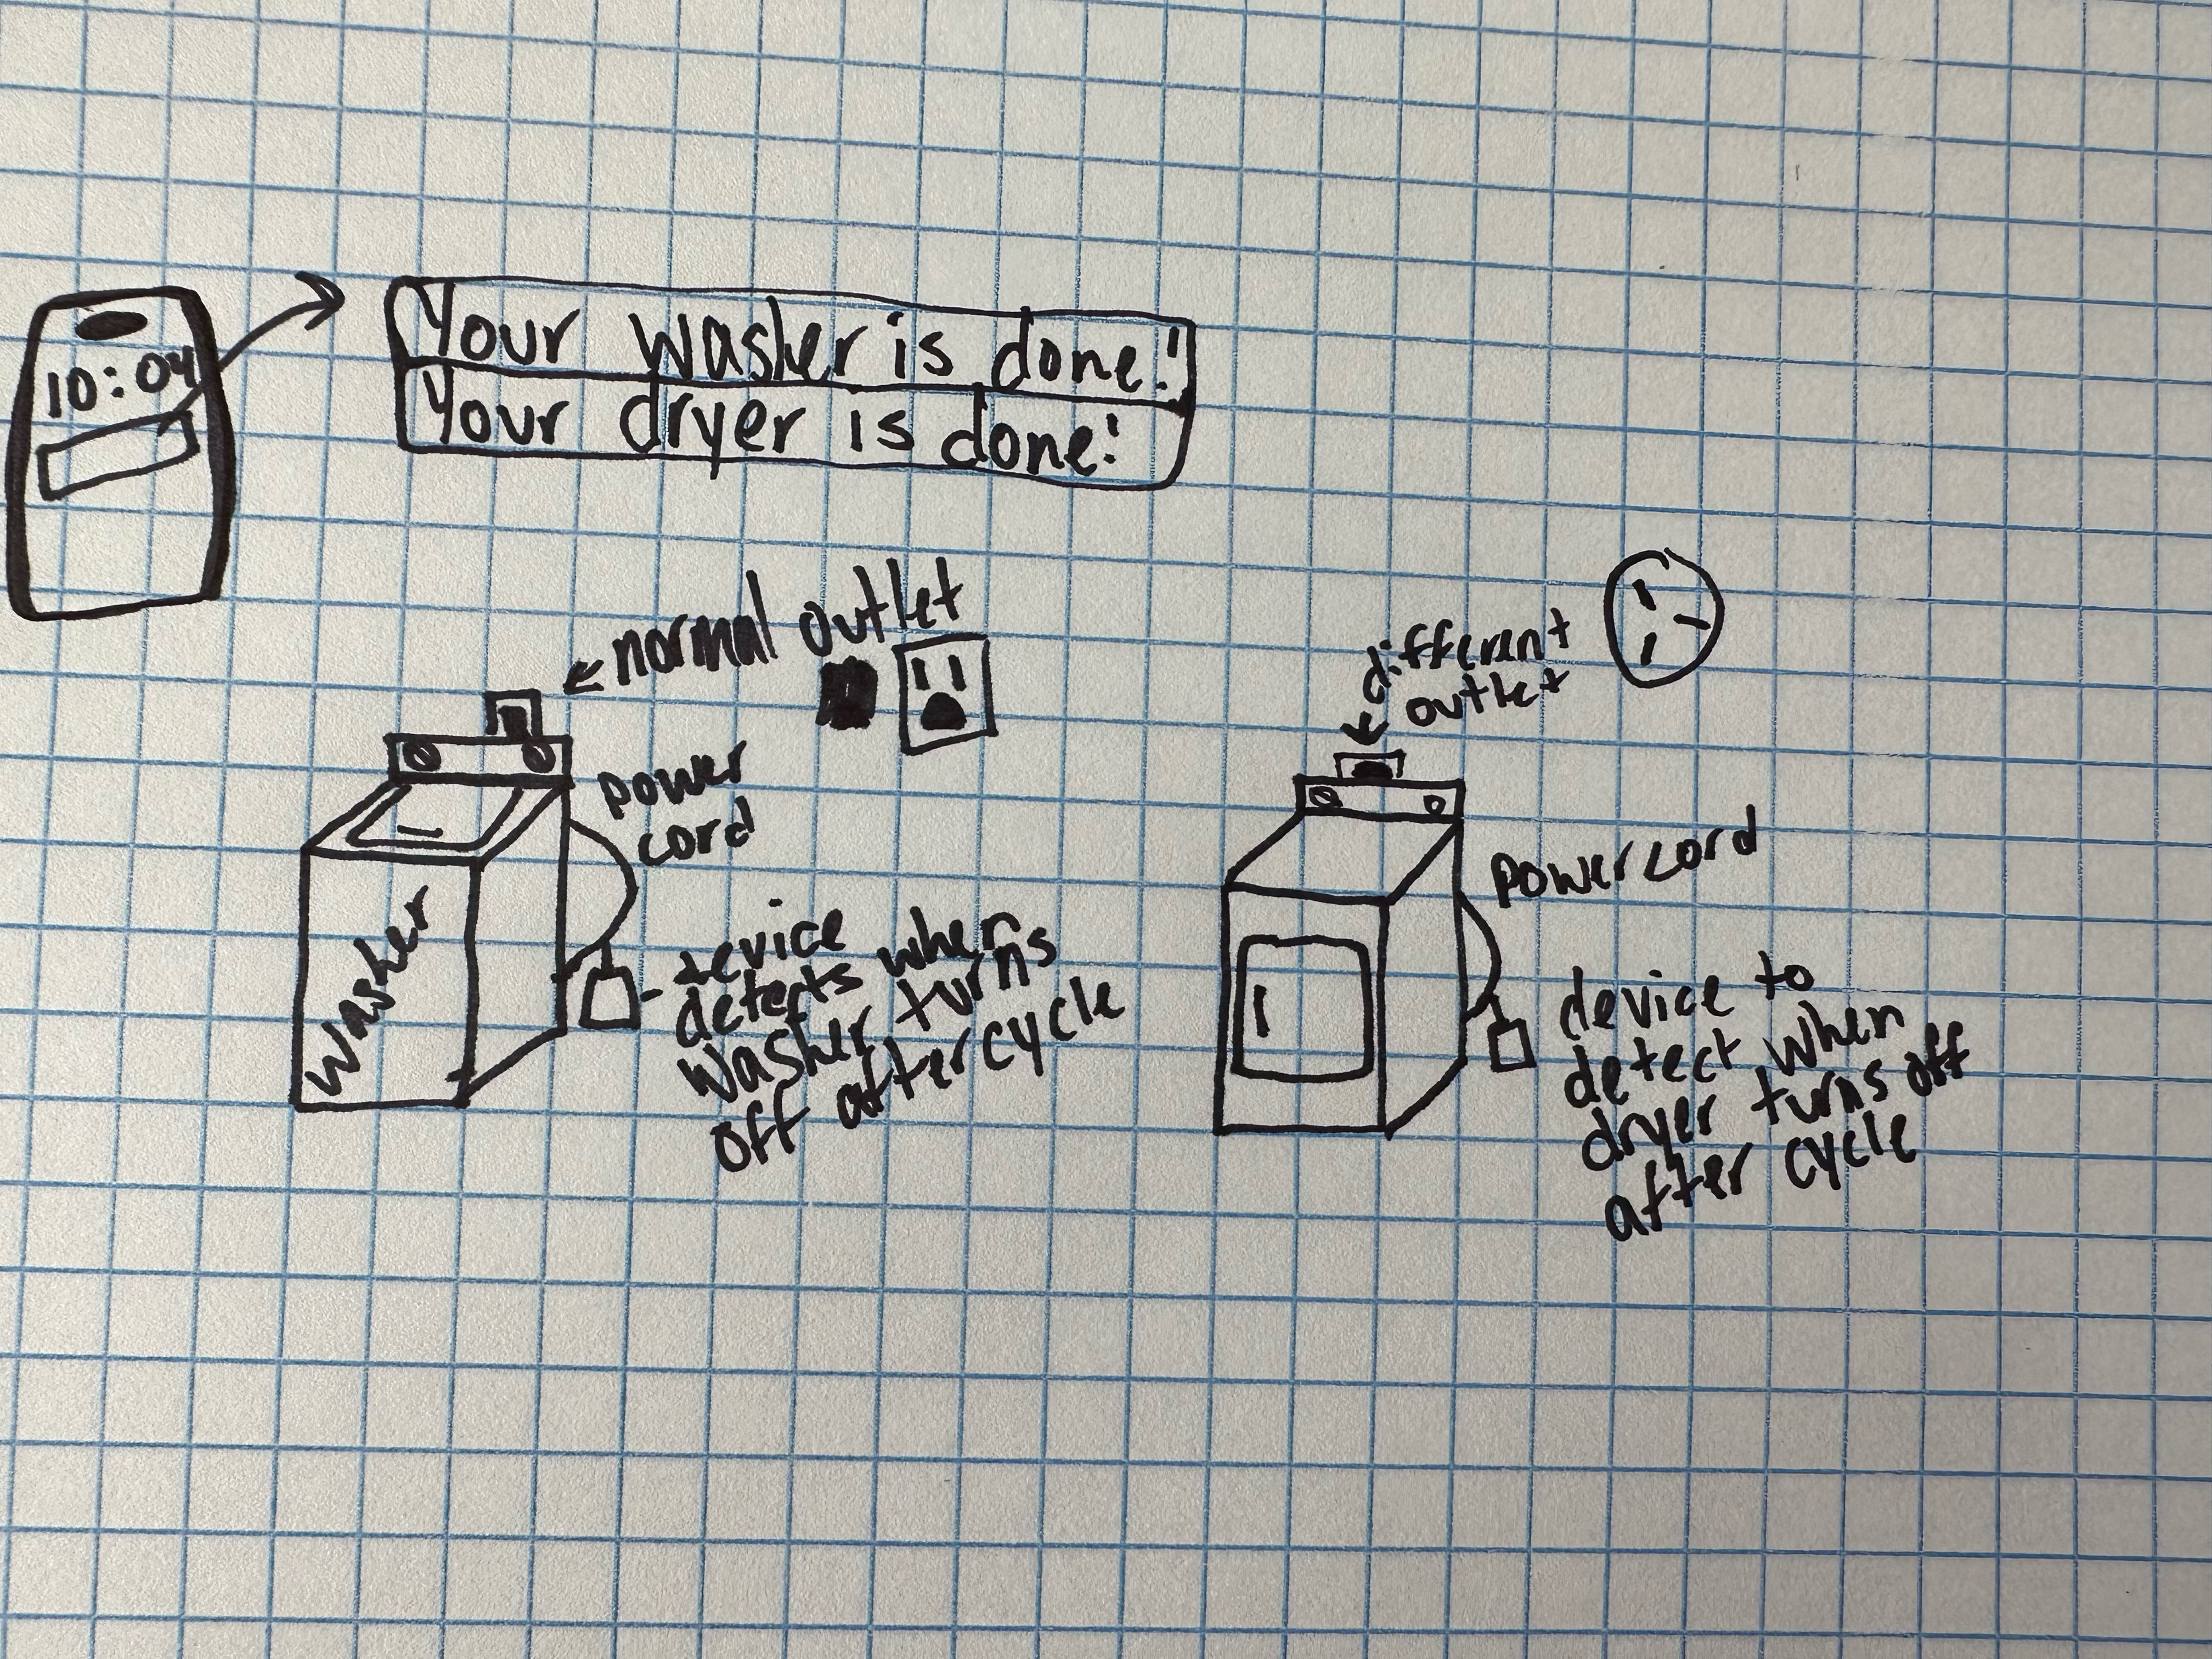 10:04
Your washer is done!
Your dryer is done!
normal outlet
power
cord
Washer
device
detects when
washer turns
off after cycle
different
outlet
power cord
device to
detect when
dryer turns off
after cycle